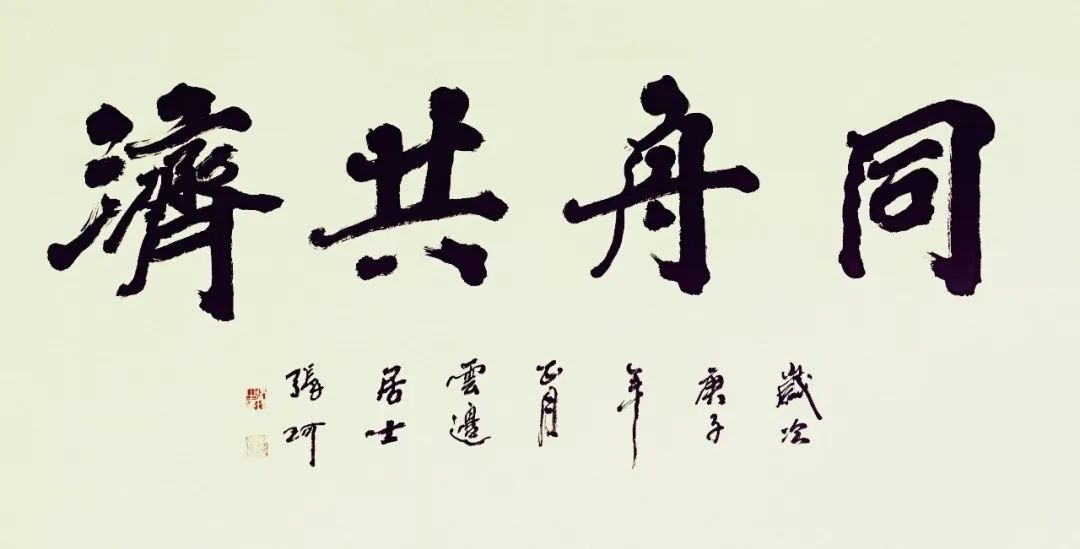 同舟共濟
歲次
庚子
年
正月
雲邊
居士
張珂